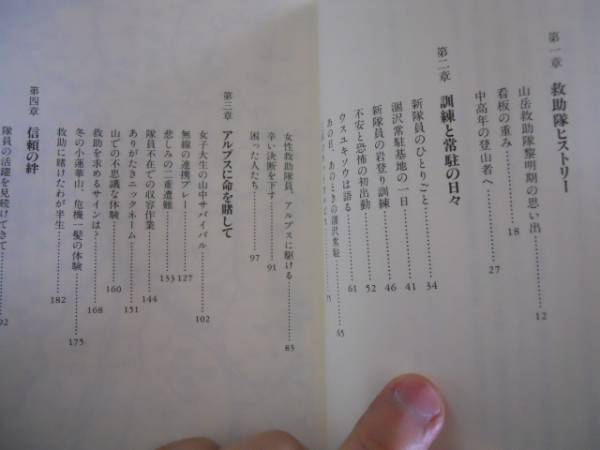 第一章 救助隊ヒストリー
山岳救助隊黎明期の思い出……12
看板の重み……18
中高年の登山者へ……27
第二章 訓練と常駐の日々
新隊員のひとりごと……34
涸沢常駐基地の一日……41
新隊員の岩登り訓練……46
不安と恐怖の初出動……52
ウスユキソウは語る……61
あの日、あのときの涸沢常駐……65
女性救助隊員、アルプスに駆ける……83
辛い決断を下す……91
困った人たち……97
第三章 アルプスに命を賭して
女子大生の山中サバイバル……102
無線の連携プレー……127
悲しみの二重遭難……133
隊員不在での収容作業……144
ありがたきニックネーム……151
山での不思議な体験……160
救助を求めるサインは？……168
冬の小蓮華山、危機一髪の体験……175
救助に賭けたわが半生……182
第四章 信頼の絆
隊員の活躍を見続けてきて……92